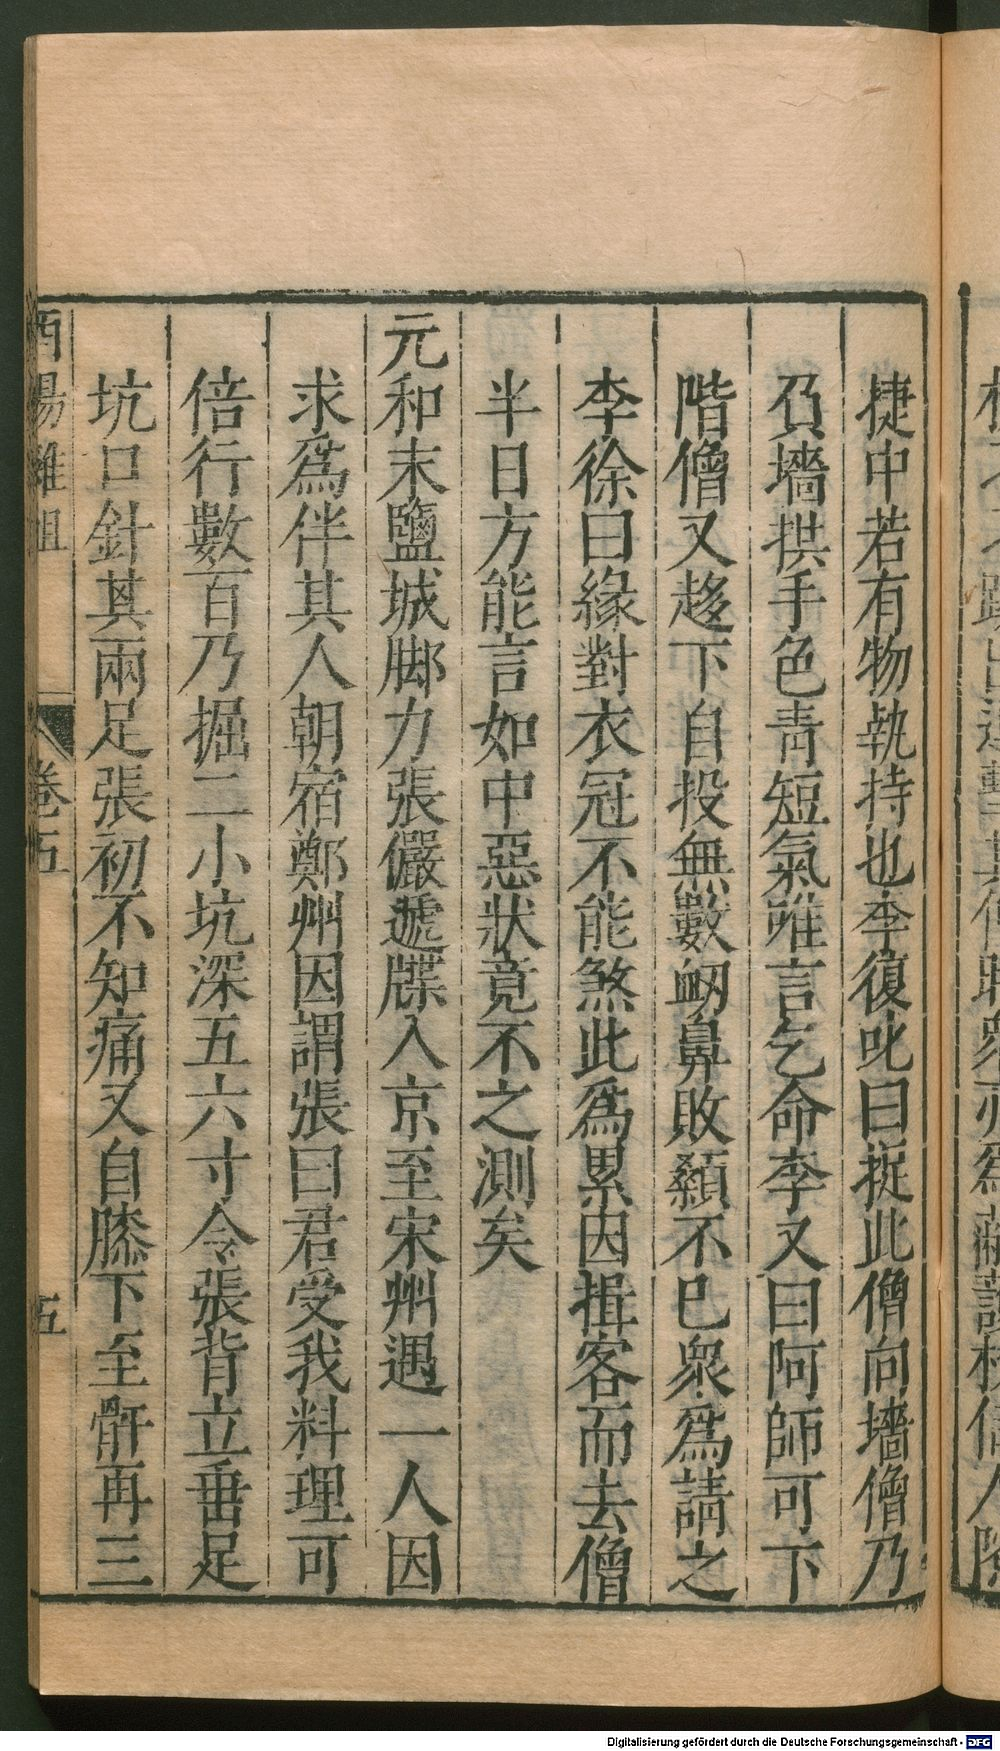 捷中若有物執持也李復叱曰挺此僧向墻僧乃
負墻拱手色青短氣唯言乞命李又曰阿師可下
階僧又趍下自投無數衂鼻敗顙不已衆爲請之
李徐曰緣對衣冠不能煞此爲累因揖客而去僧
半日方能言如中惡狀竟不之測矣
元和末鹽城脚力張儼遞牒入京至宋州遇一人因
求爲伴其人朝宿鄭州因謂張曰君受我料理可
倍行數百乃掘二小坑深五六寸令張背立垂足
坑口針其兩足張初不知痛又自膝下至骭再三
酉陽雜俎 卷五 五
Digitalisierung gefördert durch die Deutsche Forschungsgemeinschaft - DFG